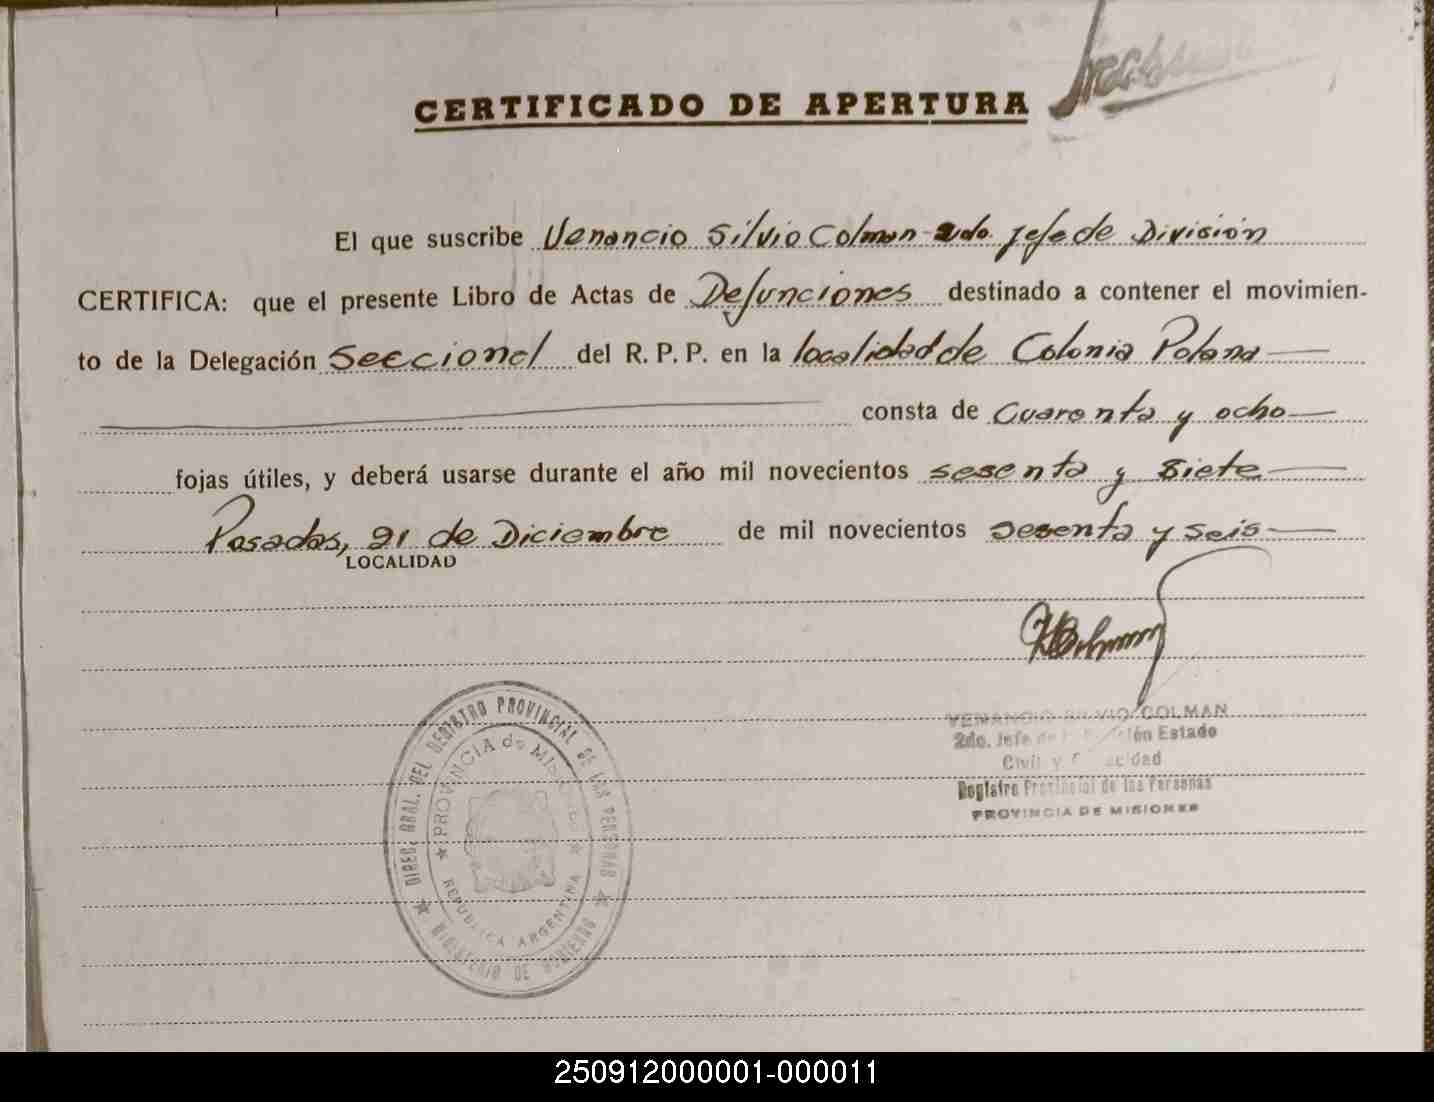 CERTIFICADO DE APERTURA
El que suscribe Venancio Silvio Colman 2do. Jefe de División
CERTIFICA: que el presente Libro de Actas de Defunciones destinado a contener el movimien-
to de la Delegación Seccional del R. P. P. en la localidad de Colonia Polana
consta de Cuarenta y ocho
fojas útiles, y deberá usarse durante el año mil novecientos sesenta y siete
Posadas, 21 de Diciembre de mil novecientos sesenta y seis
LOCALIDAD
VENANCIO SILVIO COLMAN
2do. Jefe de Estado
Civil y
Registro Provincial de las Personas
PROVINCIA DE MISIONES
DIREC. GRAL. DEL REGISTRO PROVINCIAL DE LAS PERSONAS
MINISTERIO DE GOBIERNO
PROVINCIA de MISIONES
REPUBLICA ARGENTINA
250912000001-000011